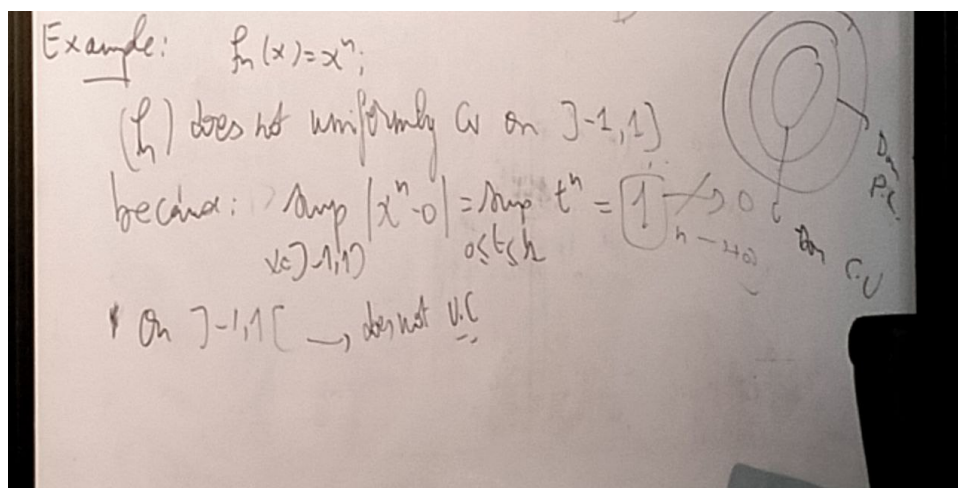 Example: fn(x)=x^n;
(fn) does not uniformly cv on ]-1,1]
because: sup |x^n-0| = sup t^n = 1 -/-> 0
x∈]-1,1] 0≤t≤1 n→+∞
• On ]-1,1[ → does not U.C
Dom
P.C.
Dom
C.U